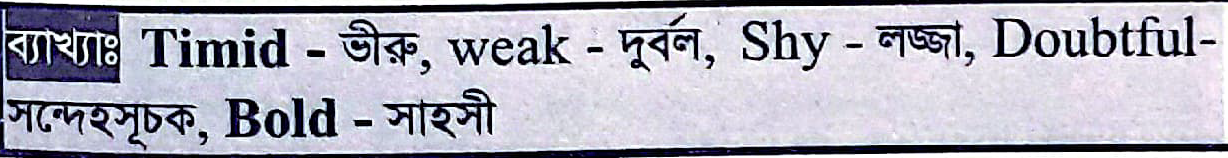 ব্যাখ্যাঃ Timid - ভীরু, weak - দূর্বল, Shy - লজ্জা, Doubtful-
সন্দেহসূচক, Bold - সাহসী